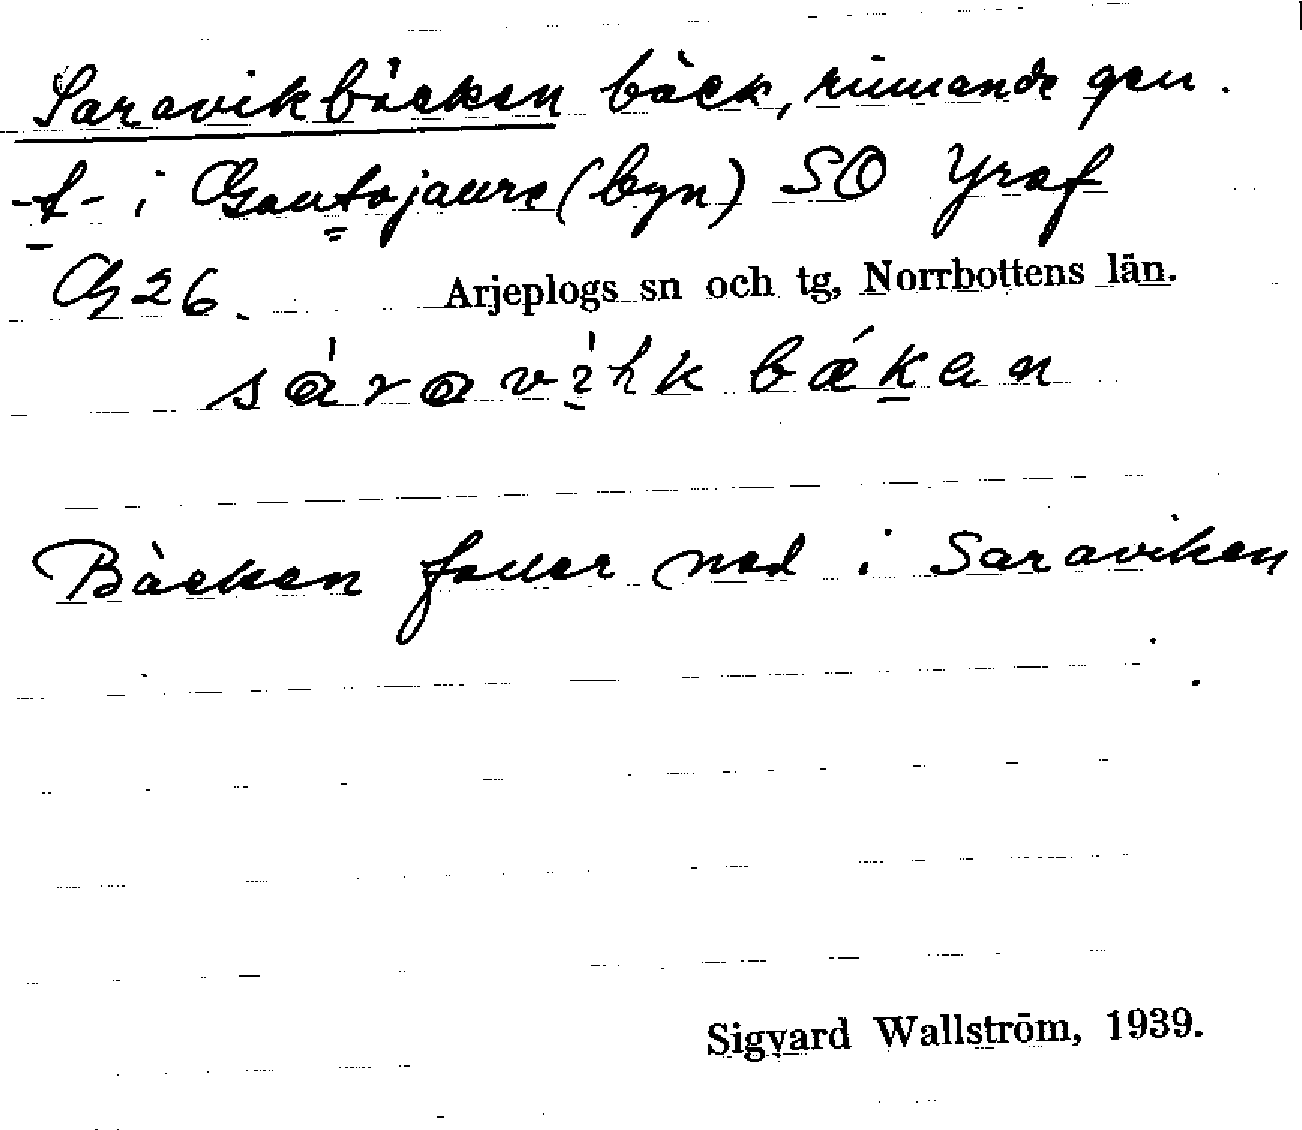 Saravikbäcken bäck, rinnande gen.
-t- i Gautojaure (byn) SO Yraf
G 26. Arjeplogs sn och tg, Norrbottens län.
Bäcken faller ned i Saraviken
.
Sigvard Wallström, 1939.